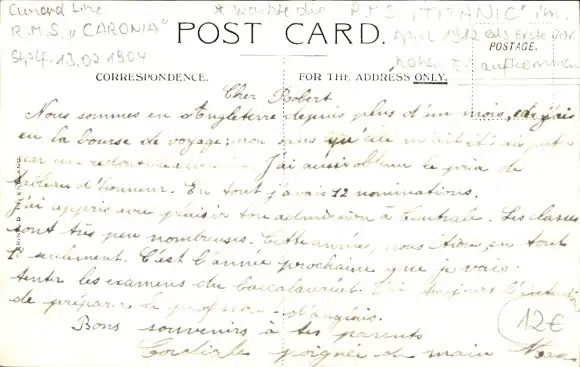 Cunard Line
R.M.S. „CARONIA"
Sept. 13.02 1904
* warnte die R.M.S. „TITANIC" im
April 1912 als Erste vor
hohem Eisaufkommen
POST CARD.
POSTAGE.
CORRESPONDENCE.
FOR THE ADDRESS ONLY.
Cher Robert
Nous sommes en Angleterre depuis plus d'un mois, j'ai
eu la bourse de voyage; non sans qu'elle m'ait été
J'ai aussi obtenu le prix de
tableau d'honneur. En tout j'avais 12 nominations.
J'ai appris avec plaisir ton admission à Centrale. Les classes
sont très peu nombreuses. Cette année, nous étions en tout
seulement. C'est l'année prochaine que je vais
tenter les examens du baccalauréat. J'ai toujours l'intention
de préparer
Bons souvenirs à tes parents
Cordiale poignée de main
12€
PRINTED IN ENGLAND.